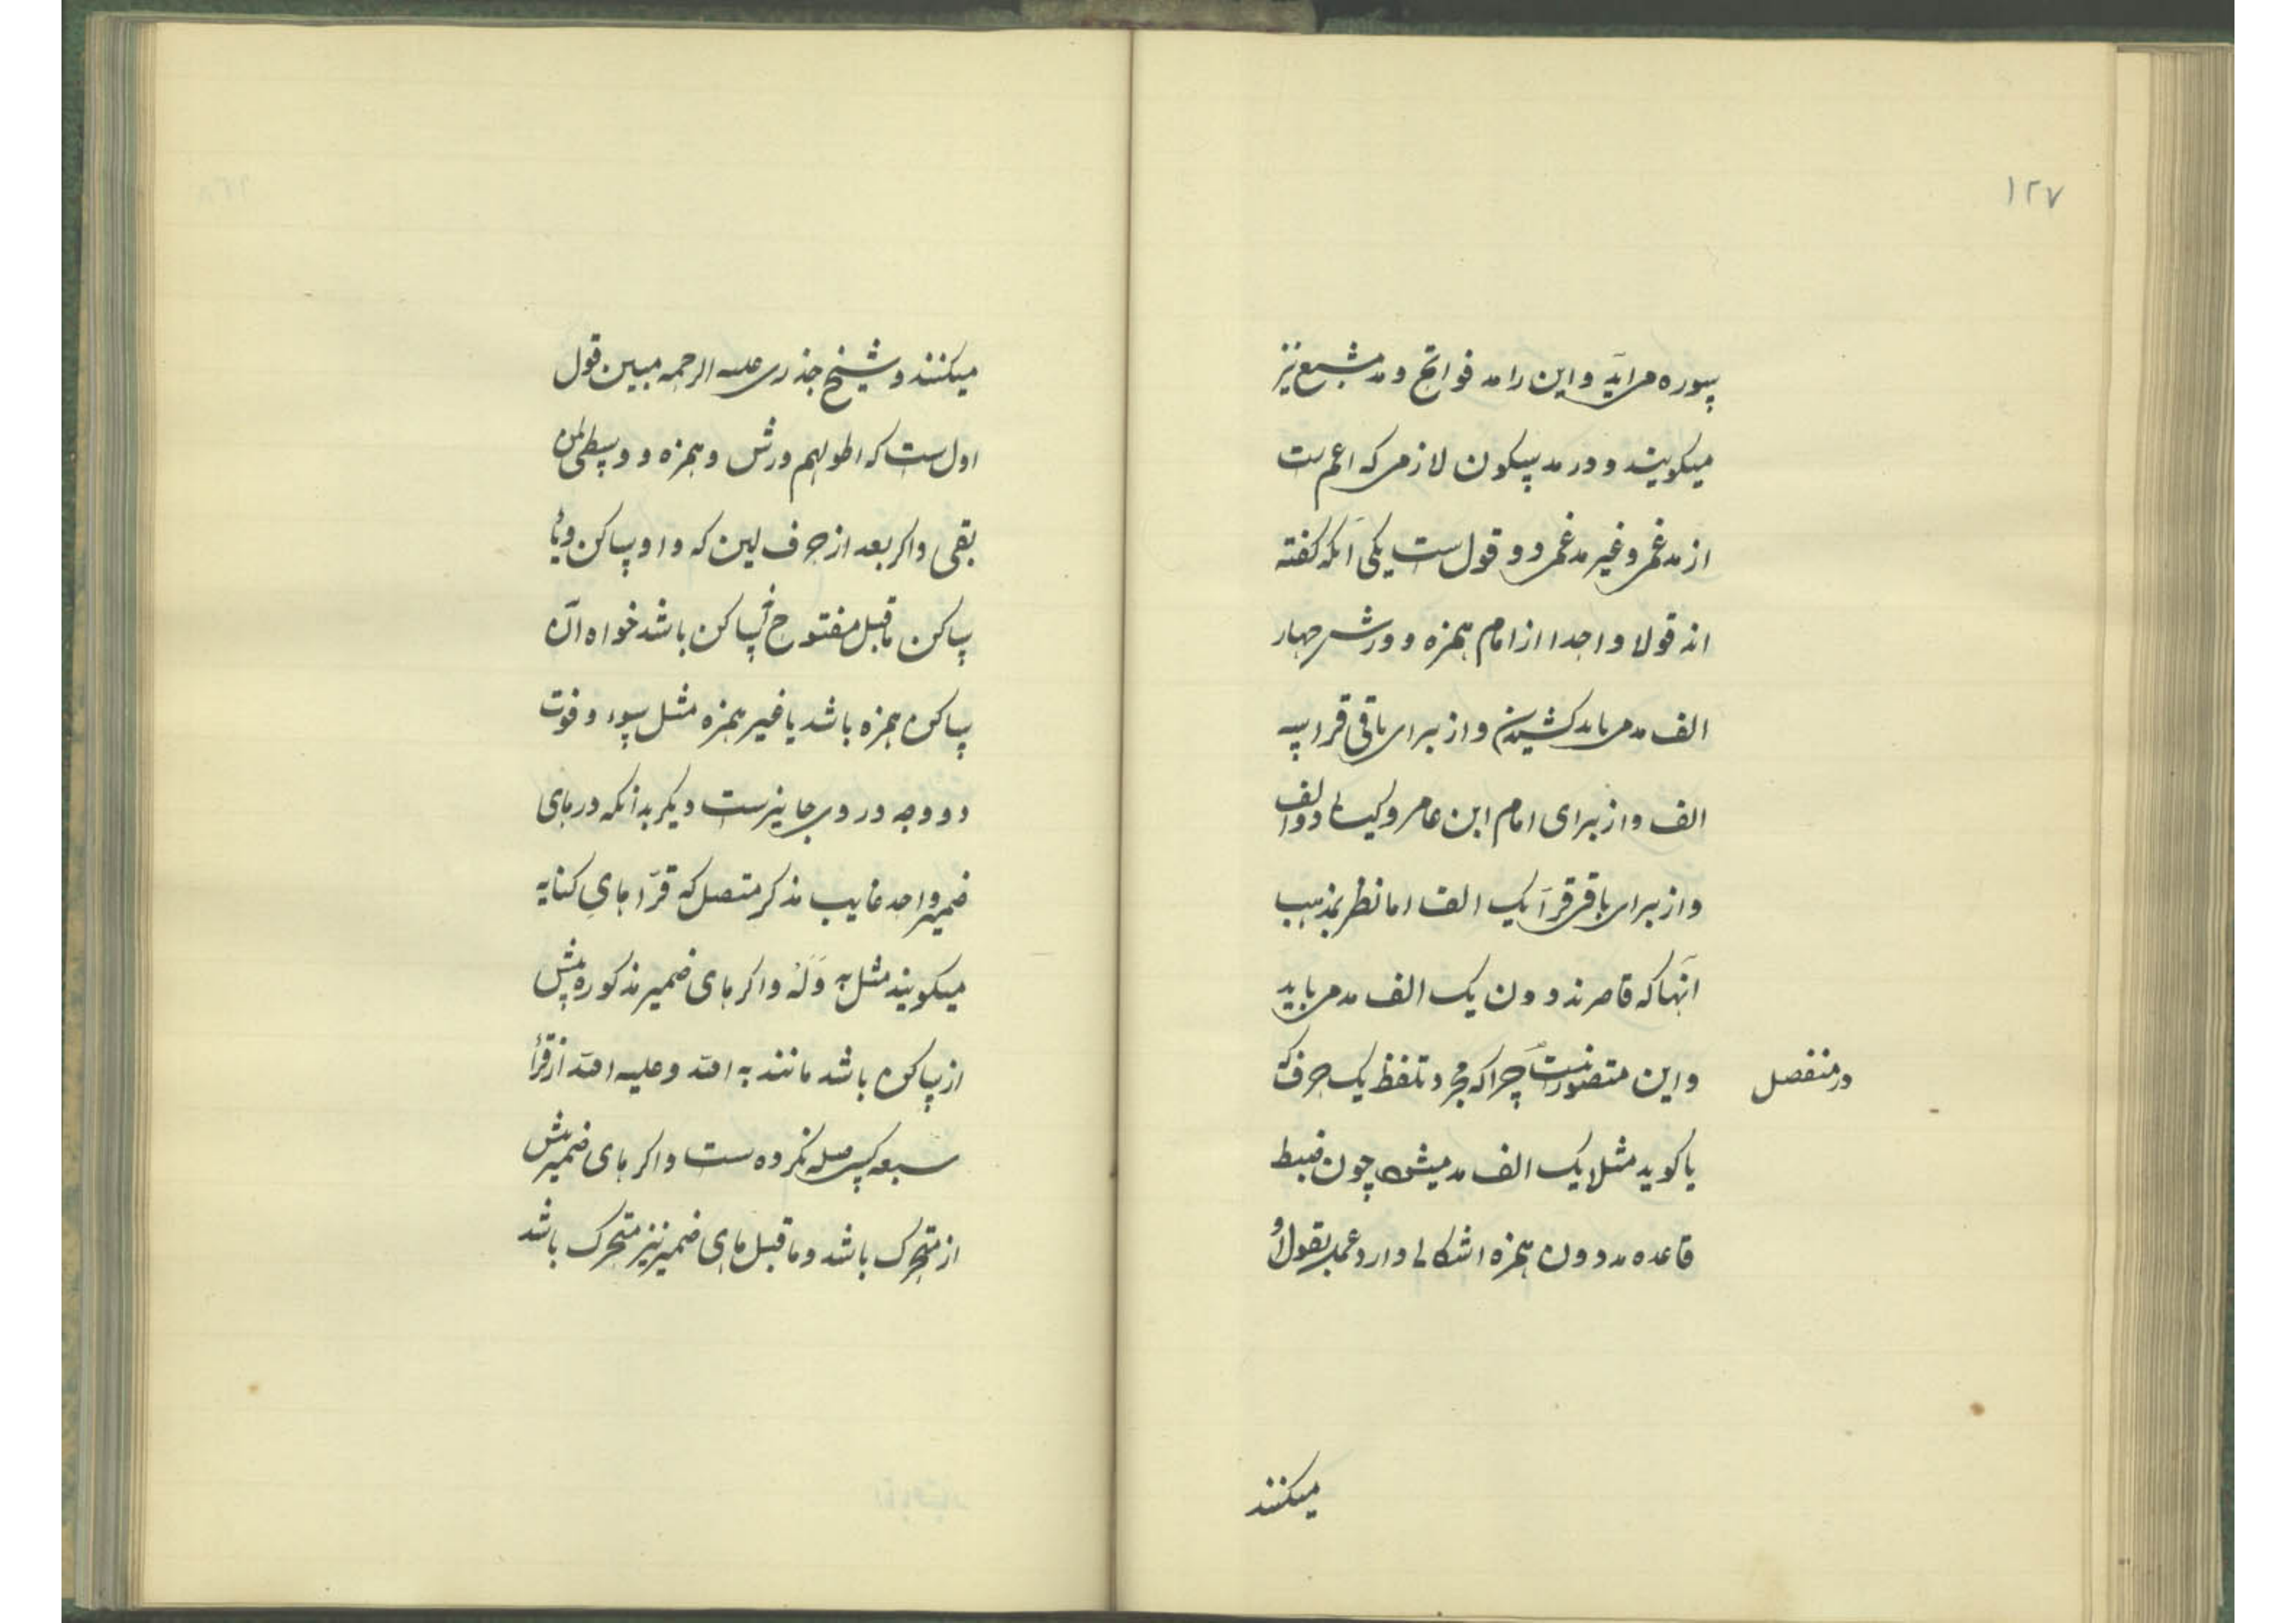 ۱۲۷
سوره می آید و این را مد فواتح و مد مشبع نیز
میکویند و در مد سکون لازمی که اعم ست
از مدغمی و غیر مدغمی دو قول ست یکی آنکه کفته
اند قولا واحدا از امام همزه و ورش چهار
الف مد می باید کشیدن و از برای باقی قرا سه
الف و از برای امام ابن عامر و کسائی دو الف
و از برای باقی قرآ یک الف اما نظر بمذهب
آنها که قاصرند دون یک الف مد می باید
در منفصل
و این متصور نیست چرا که مجرد تلفظ یک حرف که
یا کوید مثلا یک الف مد میشود چون ضبط
قاعده مد دون همزه اشکالی دارد عمل بقول او
میکنند
میکنند و شیخ جذری علیه الرحمه مبین قول
اول ست که اطولهم ورش و همزه و وسطی لمن
بقی و اکر بعد از حرف لین که واو ساکن و یا
ساکن ماقبل مفتوح ساکن باشد خواه آن
ساکن همزه باشد یا غیر همزه مثل سوء و فوت
دو وجه در وی جایزست دیکر بدانکه در های
ضمیر واحد غایب مذکر متصل که قرّا های کنایه
میکویند مثل به وَلَهُ و اکر های ضمیر مذکوره پیش
از ساکن باشد مانند به الله و علیه الله از قرّأ
سبعه کسی صله نکرده ست و اکر های ضمیر پیش
از متحرک باشد و ماقبل های ضمیر نیز متحرک باشد